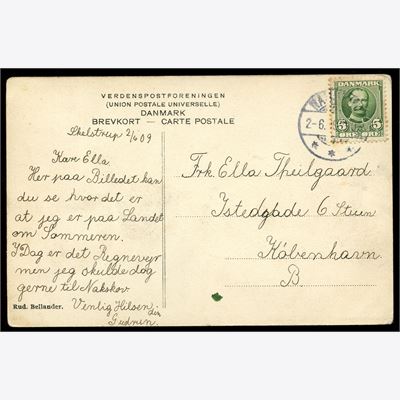 VERDENSPOSTFORENINGEN
(UNION POSTALE UNIVERSELLE)
DANMARK
BREVKORT — CARTE POSTALE
Skelstrup 2/6 09
Kære Ella
Her paa Billedet kan
du se hvor det er
at jeg er paa Landet
om Sommeren.
I Dag er det Regnevyr
men jeg skulde dog
gerne til Nakskov.
Venlig Hilsen
din
Gudrun.
Rud. Bellander.
DANMARK
5 5
ØRE ØRE
2-6.
Frk. Ella Theilgaard
Istedgade 6 Stuen
København
B